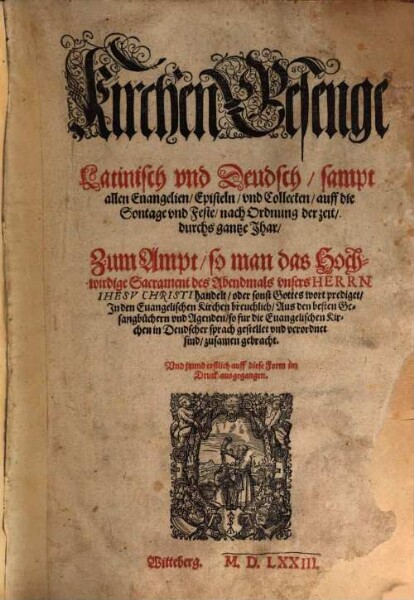 Kirchen Gesenge
Latinisch vnd Deudsch / sampt
allen Euangelien / Episteln / vnd Collecten / auff die
Sontage vnd Feste / nach Ordnung der zeit /
durchs gantze Jhar /
Zum Ampt / so man das Hoch-
wirdige Sacrament des Abendmals vnsers HERRN
IHESV CHRISTI handelt / oder sonst Gottes wort prediget /
In den Euangelischen Kirchen breuchlich / Aus den besten Ge-
sangbüchern vnd Agenden / so fur die Euangelischen Kir-
chen in Deudscher sprach gestellet vnd verordnet
sind / zusamen gebracht.
Vnd zwar erstlich auff diese Form im
Druck ausgegangen.
Witteberg. M. D. LXXIII.